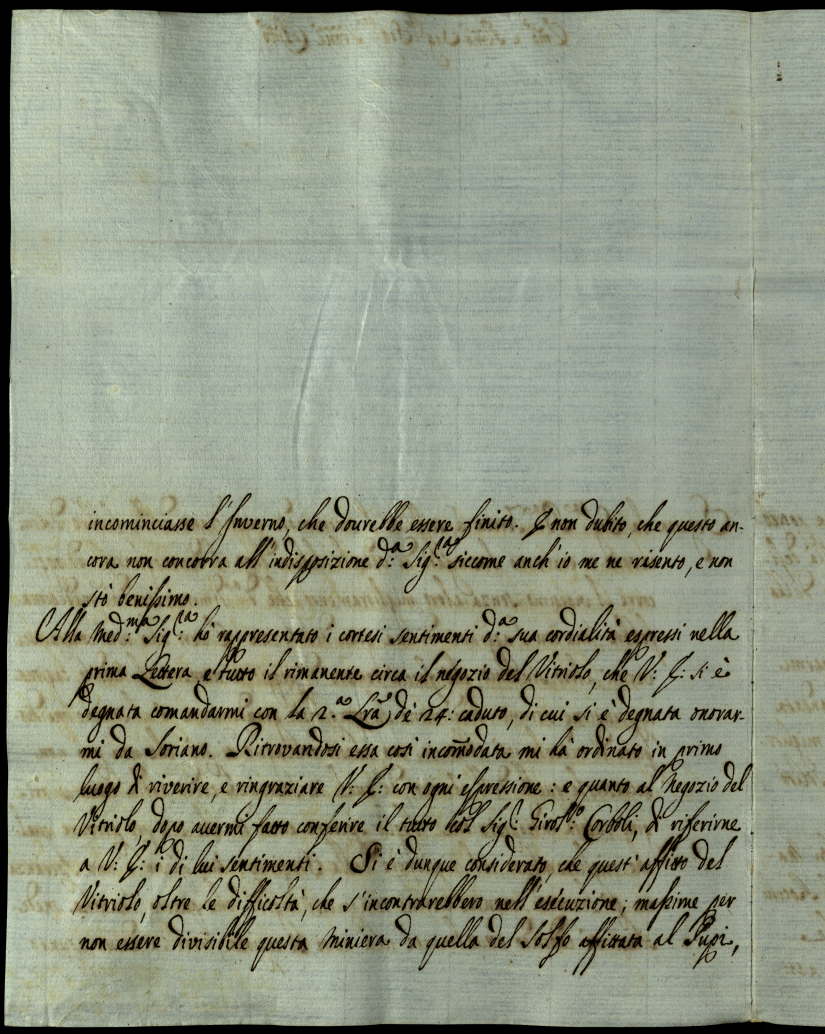 incominciasse l'Inverno, che dourebbe essere finito. E non dubito, che questo an-
cora non concorra all'indisposizione d:ª Sig:ra siccome anch'io me ne risento, e non
stò benissimo.
Alla Med:ma Sig:ra hò rappresentato i cortesi sentimenti d:ª sua cordialità espressi nella
prima Lettera, e tutto il rimanente circa il negozio del Vitriolo, che V: E: si è
degnata comandarmi con la 2.ª Lrã de 24: caduto, di cui si è degnata onorar-
mi da Soriano. Ritrovandosi essa così incom̃odata mi hà ordinato in primo
luogo di riverire, e ringraziare V: E: con ogni espressione: e quanto al Negozio del
Vitriolo, dopo avermi fatto conferire il tutto col Sig:r Girol:o Corboli, di riferirne
a V: E: i di lui sentimenti. Si è dunque considerato, che quest'affitto del
Vitriolo, oltre le difficoltà, che s'incontrarebbero nell'esecuzione; massime per
non essere divisibile questa miniera da quella del Solfo affittata al Pupi,